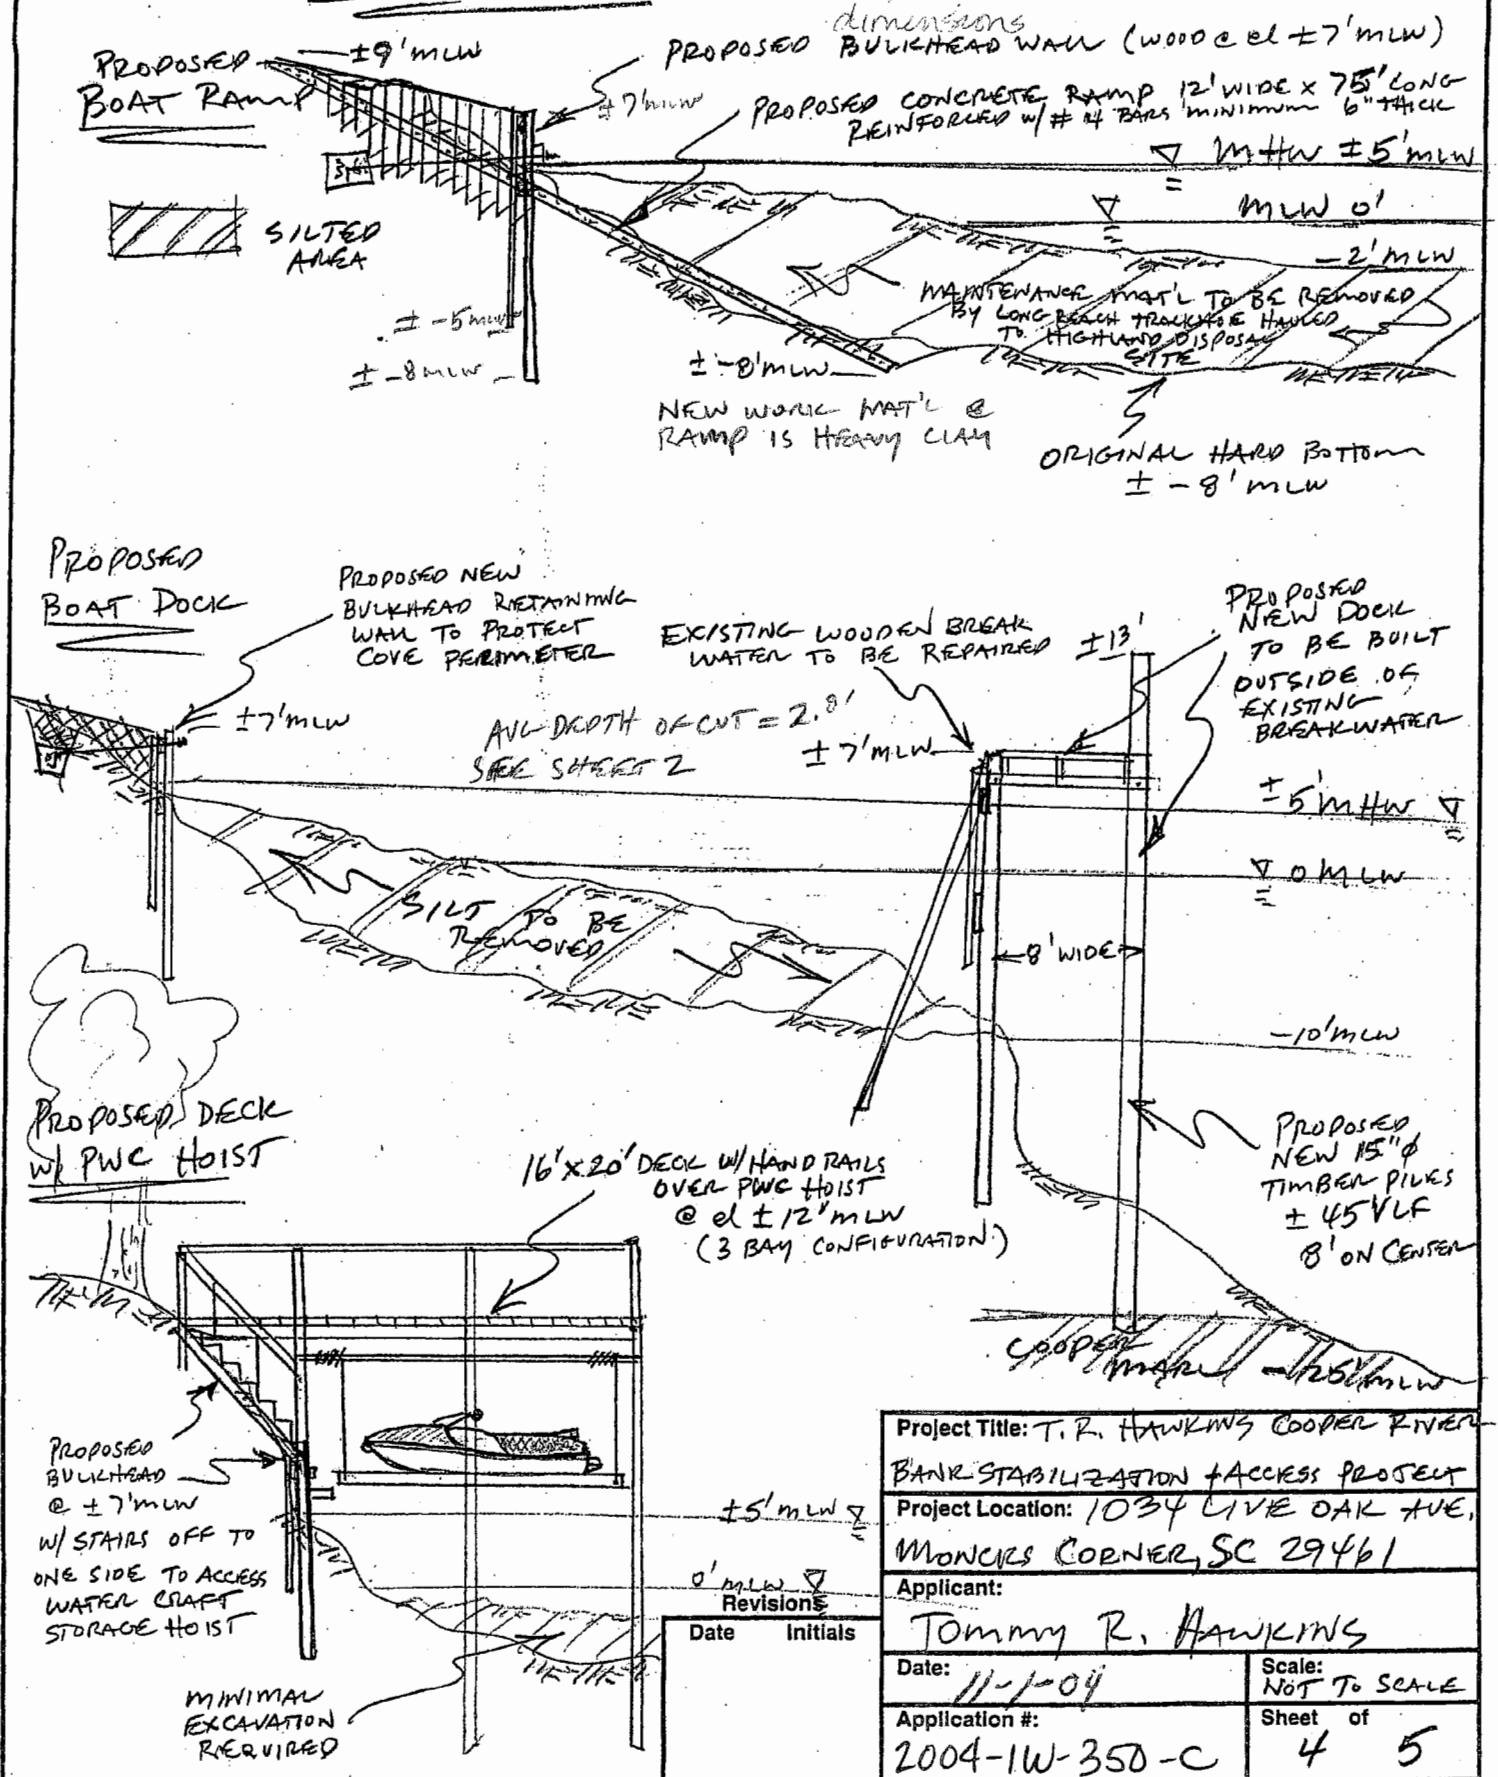 dimensions
PROPOSED
BOAT RAMP
±9' MLW
PROPOSED BULKHEAD WALL (WOOD @ el ±7' MLW)
±7' MLW
PROPOSED CONCRETE RAMP 12' WIDE x 75' LONG
REINFORCED W/ #4 BARS MINIMUM 6" THICK
MHW ±5' MLW
MLW 0'
-2' MLW
SILTED
AREA
MAINTENANCE MAT'L TO BE REMOVED
BY LONG BEACH TRACKHOE HAULED
TO HIGHLAND DISPOSAL
SITE
± -5 MLW
± -8 MLW
± -8' MLW
NEW WORK MAT'L @
RAMP IS HEAVY CLAY
ORIGINAL HARD BOTTOM
± -8' MLW
PROPOSED
BOAT DOCK
PROPOSED NEW
BULKHEAD RETAINING
WALL TO PROTECT
COVE PERIMETER
±7' MLW
EXISTING WOODEN BREAK
WATER TO BE REPAIRED
±13'
PROPOSED
NEW DOCK
TO BE BUILT
OUTSIDE OF
EXISTING
BREAKWATER
AVG DEPTH OF CUT = 2.8'
SEE SHEET 2
±7' MLW
±5' MHW
0 MLW
SILT TO BE
REMOVED
8' WIDE
-10' MLW
PROPOSED
NEW 15" ϕ
TIMBER PILES
± 45 VLF
8' ON CENTER
COOPER
MARL -25' MLW
PROPOSED DECK
W/ PWC HOIST
16' X 20' DECK W/ HAND RAILS
OVER PWC HOIST
@ el ±12' MLW
(3 BAY CONFIGURATION)
PROPOSED
BULKHEAD
@ ±7' MLW
W/ STAIRS OFF TO
ONE SIDE TO ACCESS
WATER CRAFT
STORAGE HOIST
±5' MLW
0' MLW
MINIMAL
EXCAVATION
REQUIRED
Revisions
Date Initials
Project Title: T. R. HAWKINS COOPER RIVER
BANK STABILIZATION + ACCESS PROJECT
Project Location: 1034 LIVE OAK AVE,
MONCKS CORNER, SC 29461
Applicant:
TOMMY R. HAWKINS
Date: 11-1-04
Scale: NOT TO SCALE
Application #:
2004-1W-350-C
Sheet of
4 5